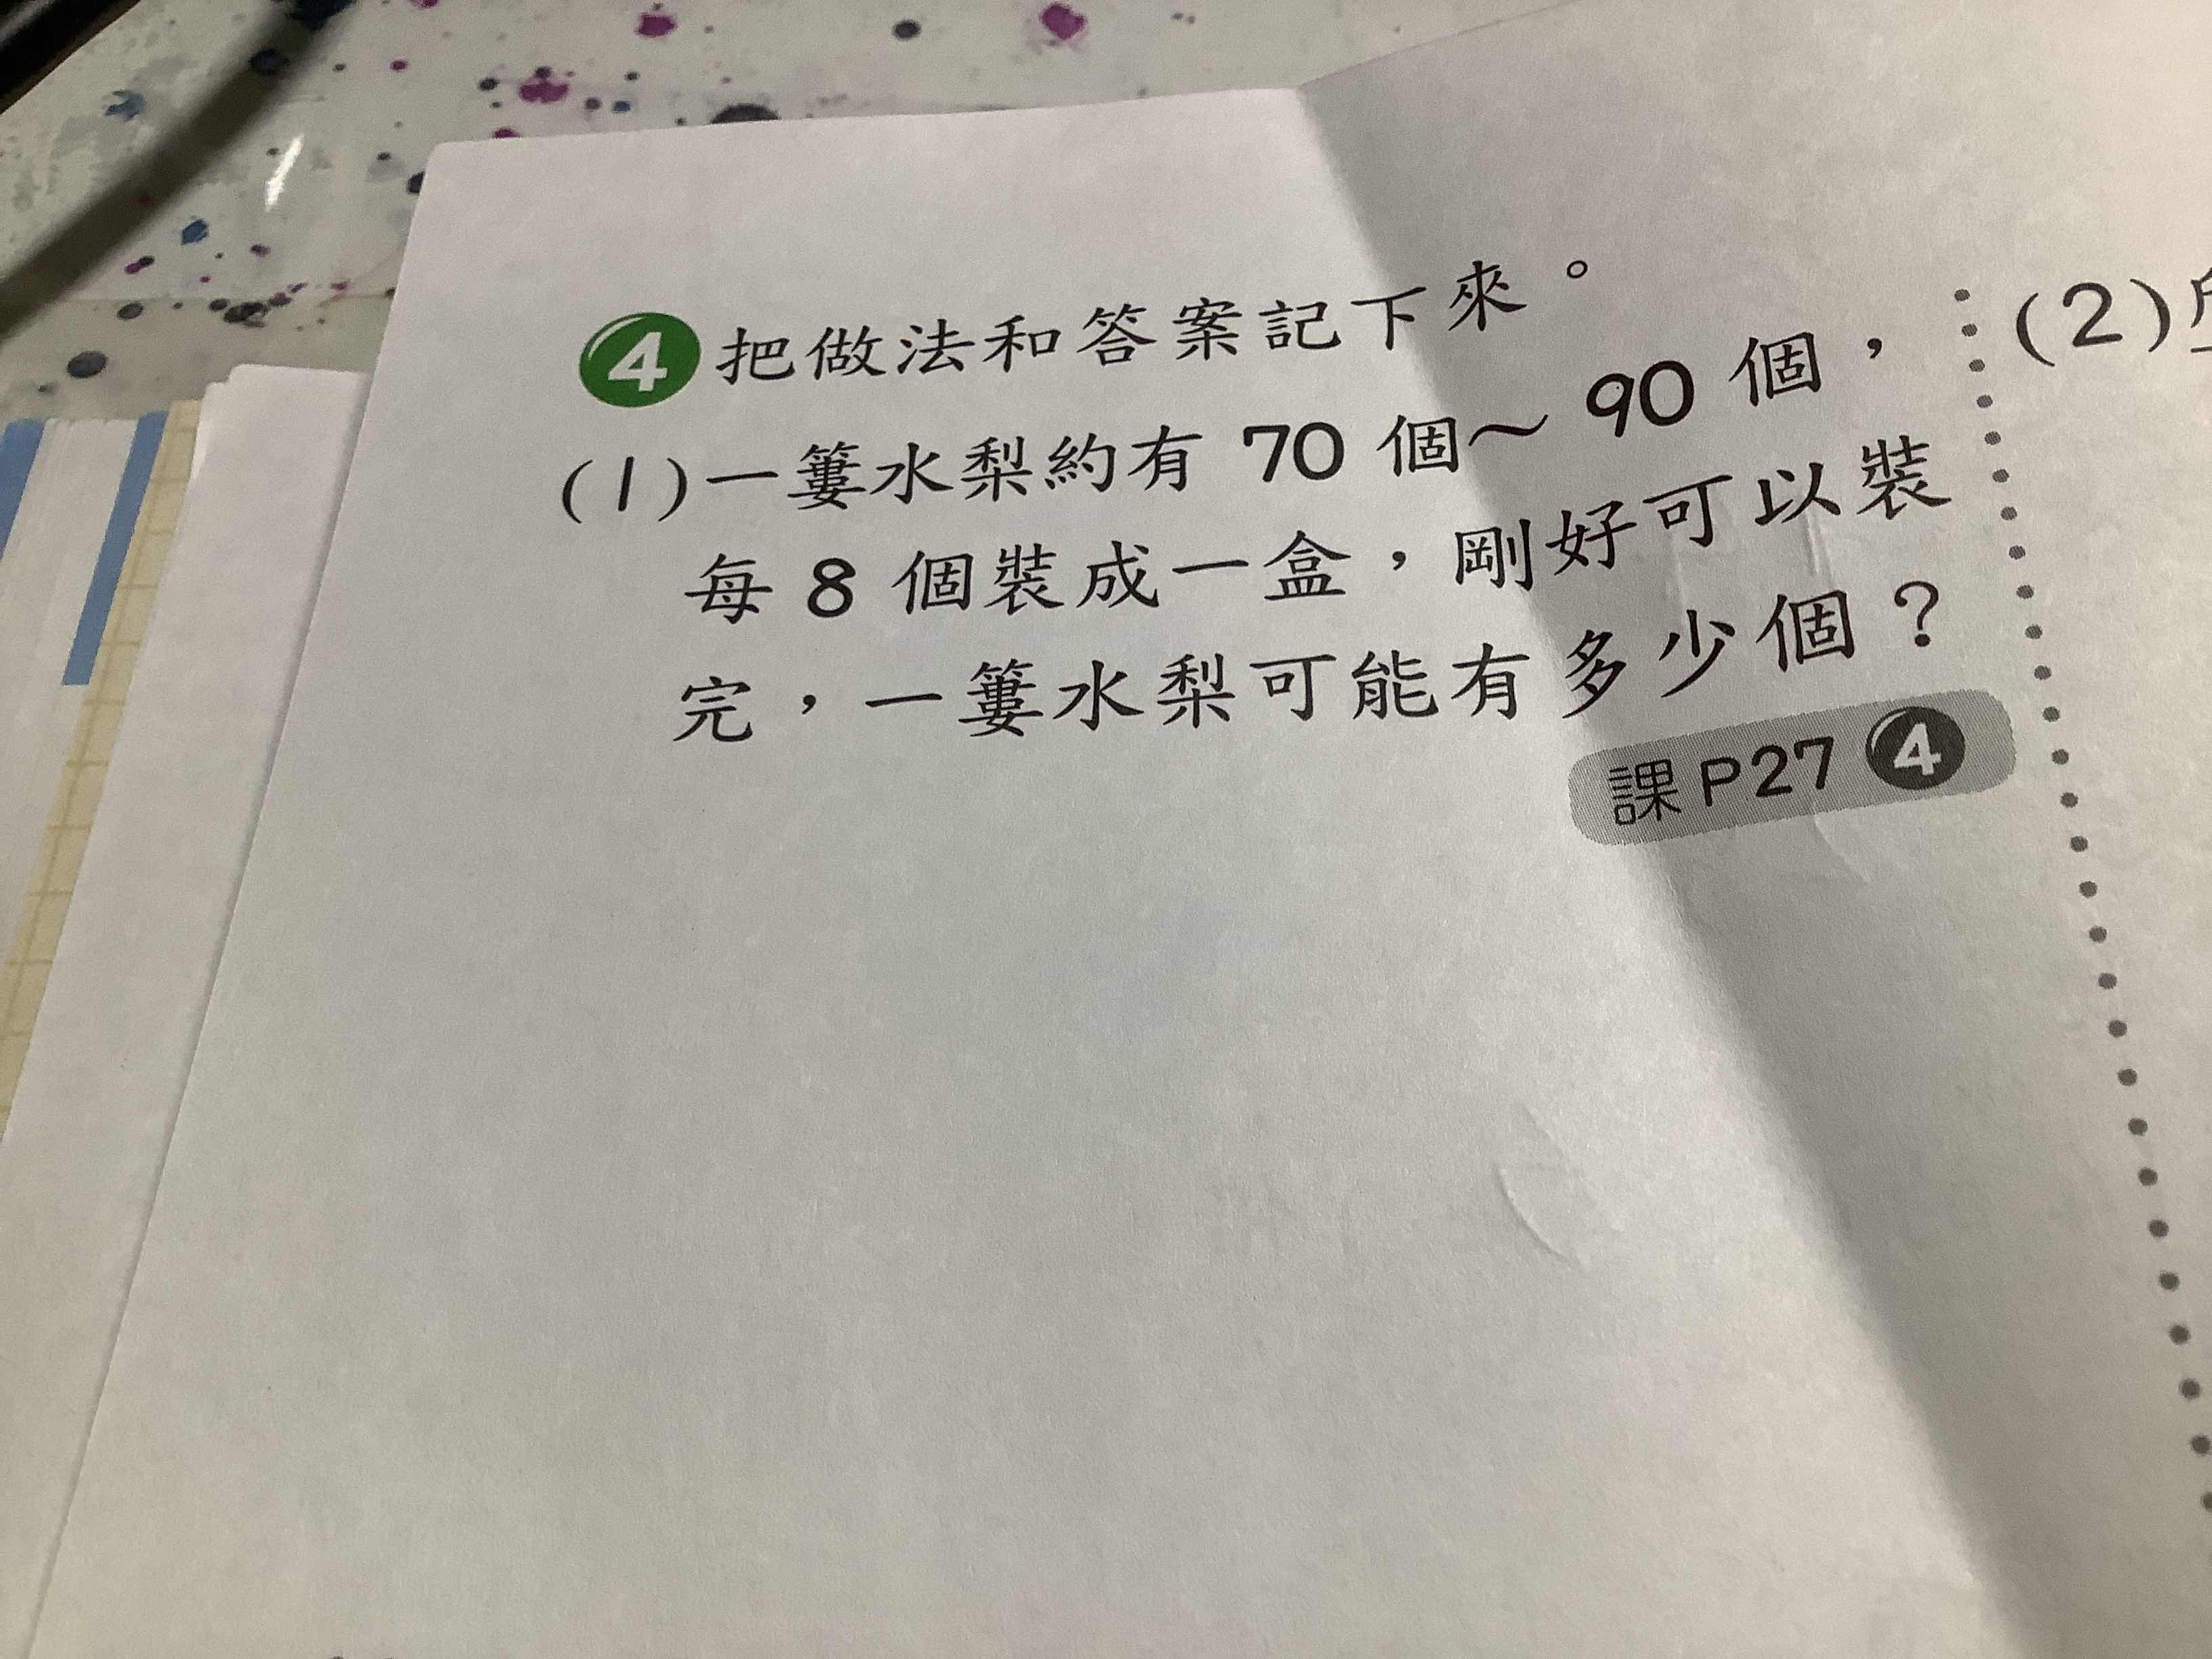 4 把做法和答案記下來。
(1)一簍水梨約有 70 個～ 90 個，
每 8 個裝成一盒，剛好可以裝
完，一簍水梨可能有多少個？
課P27 4
(2)